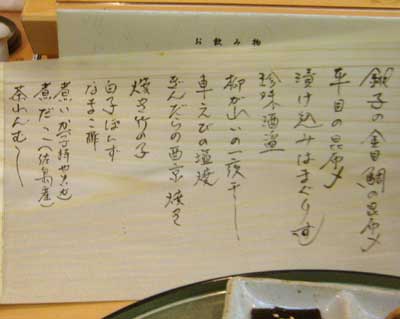 お飲み物
銚子の金目鯛の昆〆
平目の昆〆
漬け込みはまぐり
珍味酒盗
柳がれいの一夜干し
車えびの塩焼
ぎんだらの西京焼き
焼き竹の子
白子ぽんず
なまこ酢
煮いか
煮だこ(佐島産)
茶わんむし